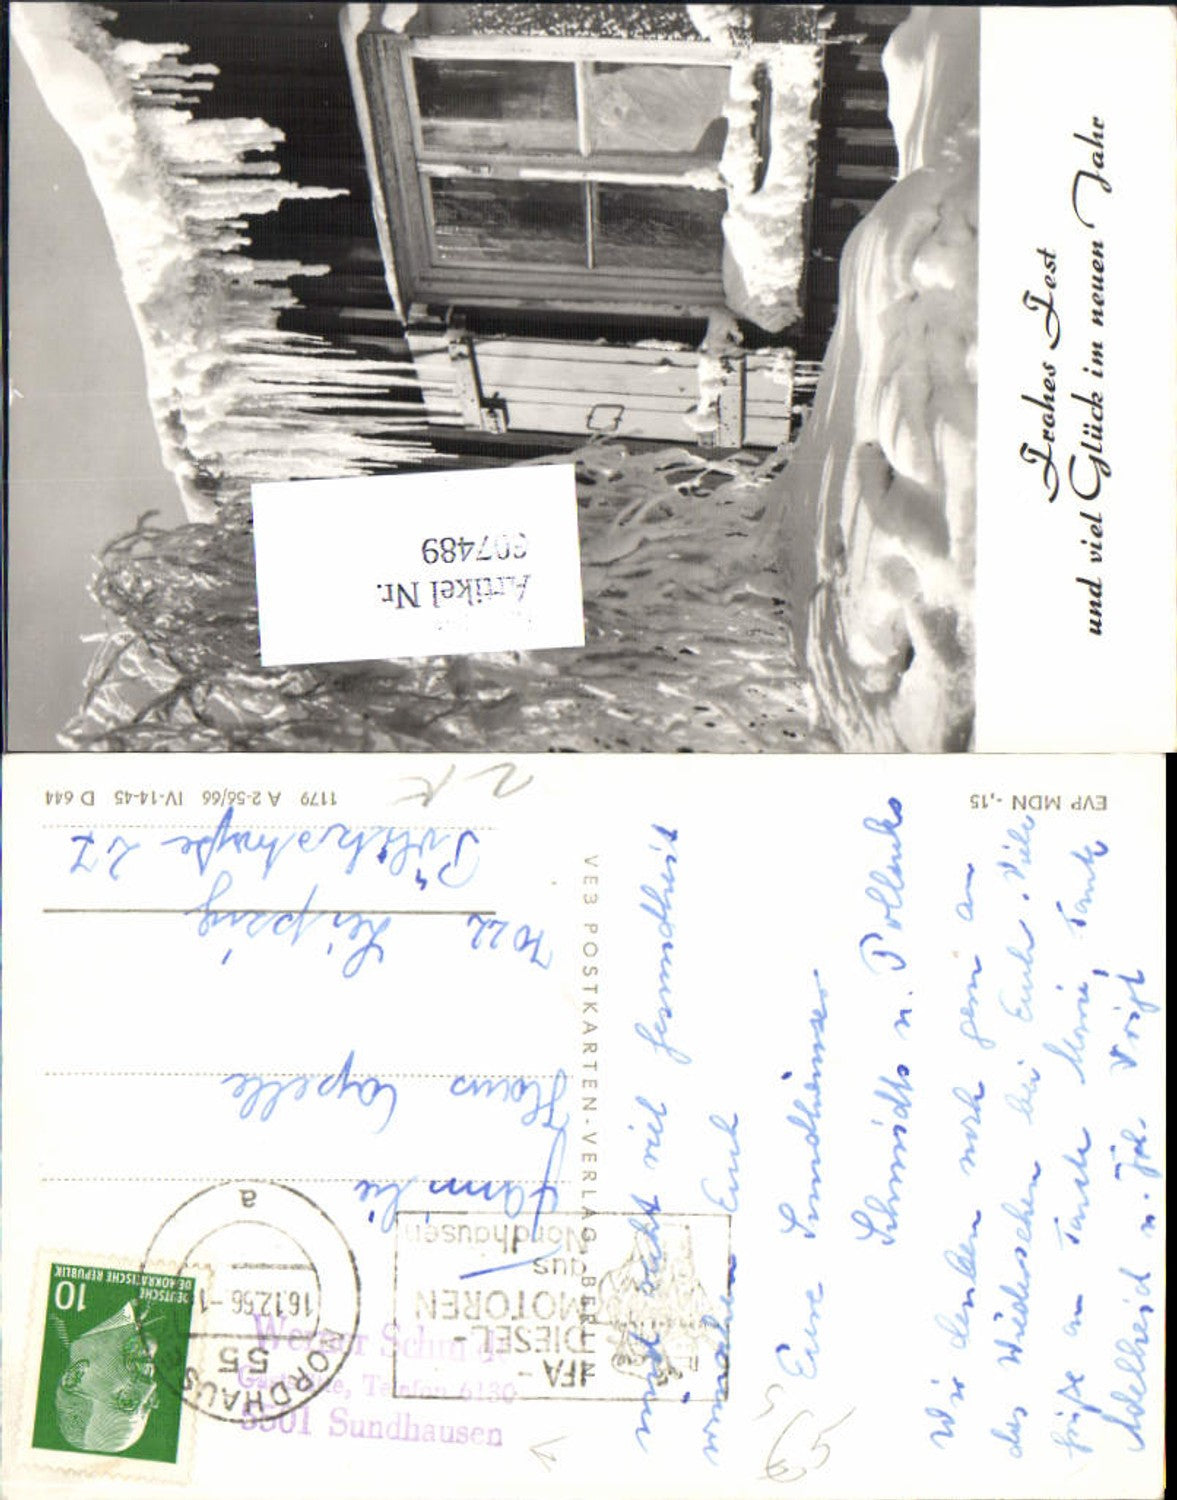 Frohes Fest
und viel Glück im neuen Jahr
Artikel Nr.
607489
EVP MDN -,15
1179 A 2-56/66 IV-14-45 D 644
VEB POSTKARTEN-VERLAG BERLIN
DEUTSCHE
DEMOKRATISCHE REPUBLIK
10
NORDHAUSEN
55
16.12.66-1
a
IFA-
DIESEL-
MOTOREN
aus
Nordhausen
Werner Schmidt
Gaststätte, Telefon 6130
5501 Sundhausen
Familie
Hans Capelle
7022 Leipzig
27
und recht viel Gesundheit
wünschen Euch
Eure Sundhäuser
Schmidts u. Pollacks
Wir denken noch gern an
das Wiedersehen bei Euch. Viele
Grüße an Tante
Adelheid u.
65